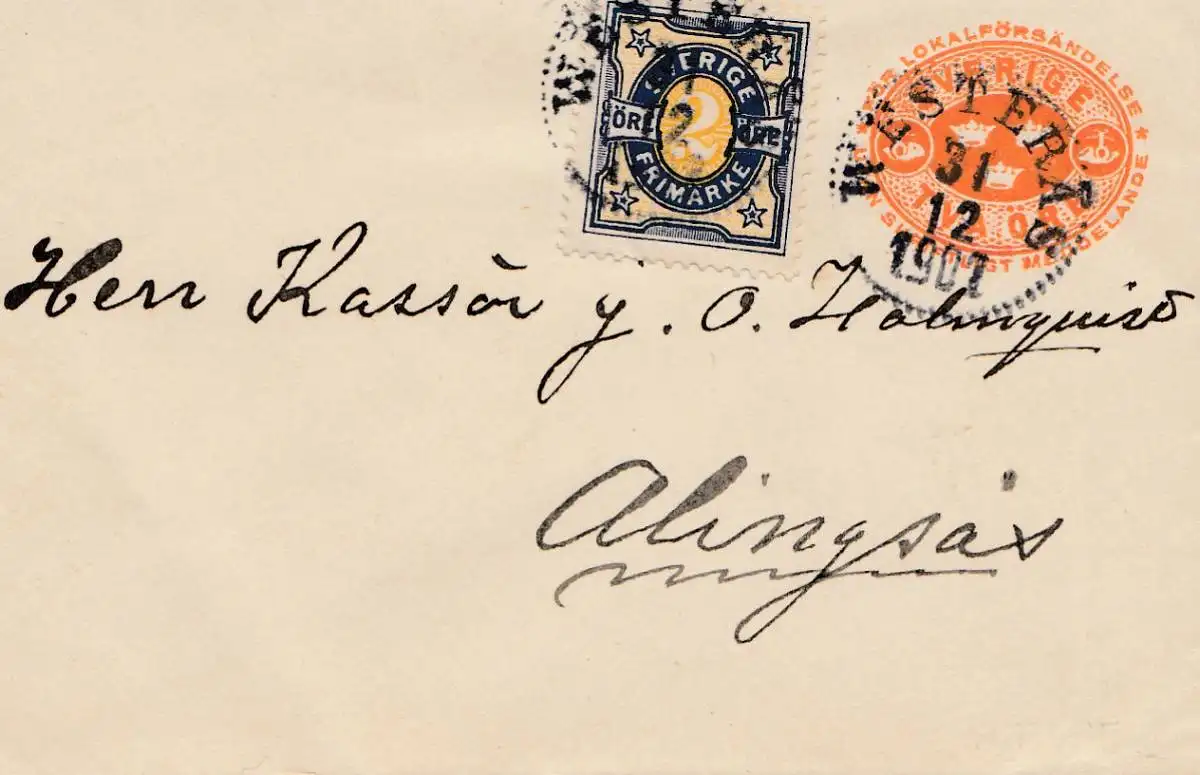 SVERIGE
ÖRE 2 ÖRE
FRIMÄRKE
LOKALFÖRSÄNDELSE
SVERIGE
TVÅ ÖRE
MEDDELANDE
WESTERÅS
31
12
1907
Herr Kassör J. O. Holmquist
Alingsås